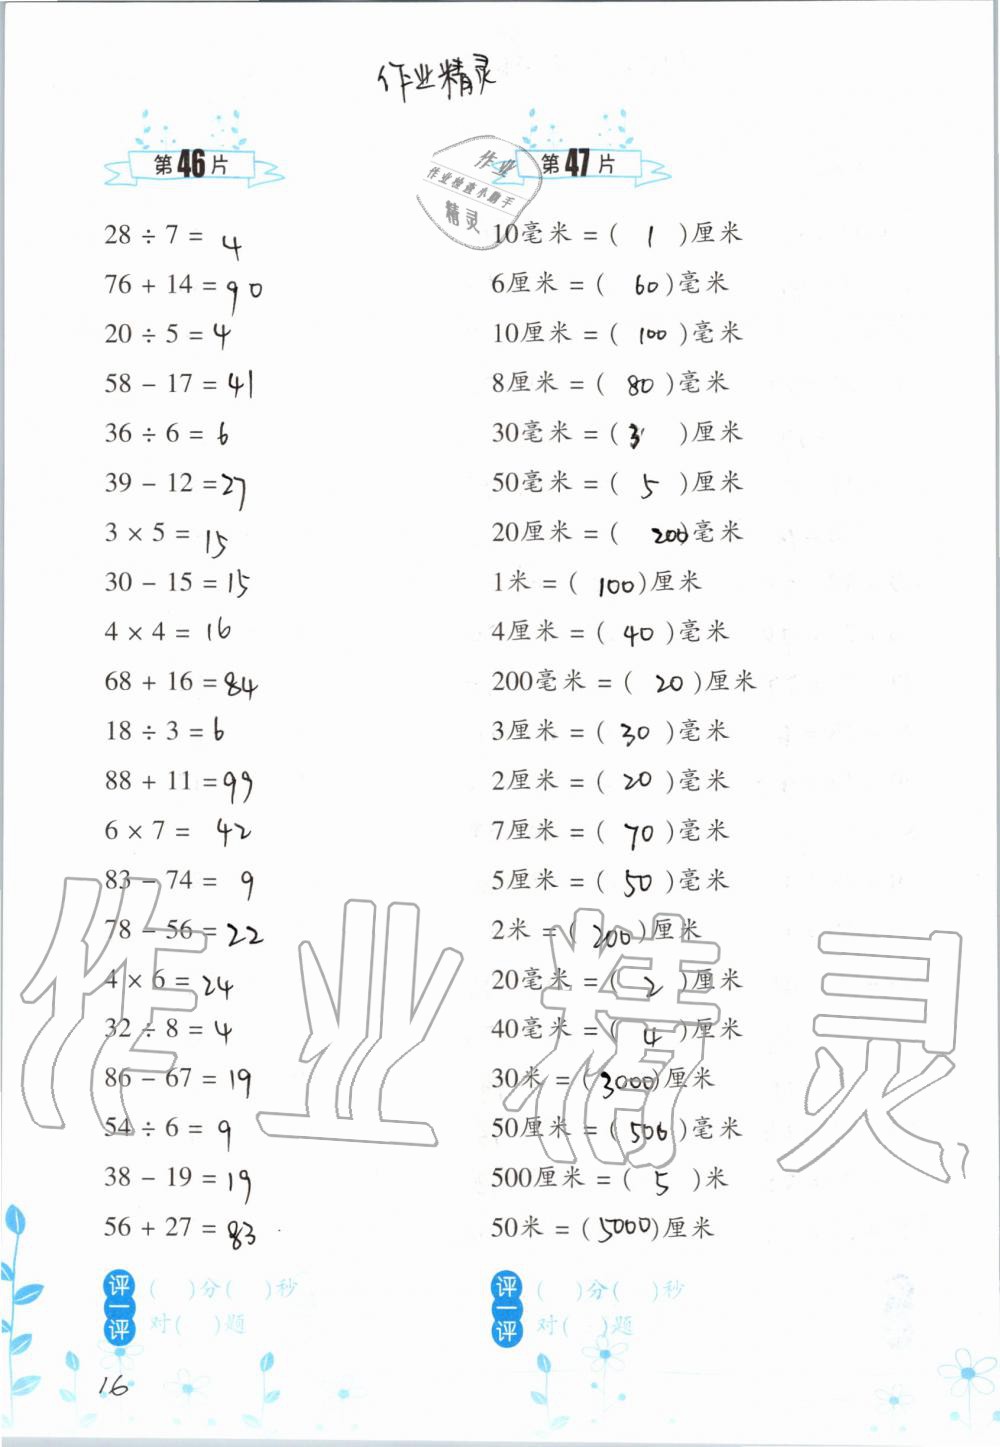 作业精灵
第46片
28 ÷ 7 = 4
76 + 14 = 90
20 ÷ 5 = 4
58 - 17 = 41
36 ÷ 6 = 6
39 - 12 = 27
3 × 5 = 15
30 - 15 = 15
4 × 4 = 16
68 + 16 = 84
18 ÷ 3 = 6
88 + 11 = 99
6 × 7 = 42
83 - 74 = 9
78 - 56 = 22
4 × 6 = 24
32 ÷ 8 = 4
86 - 67 = 19
54 ÷ 6 = 9
38 - 19 = 19
56 + 27 = 83
评一评
( )分( )秒
对( )题
16
作业
作业检查小助手
精灵
第47片
10毫米 = ( 1 )厘米
6厘米 = ( 60 )毫米
10厘米 = ( 100 )毫米
8厘米 = ( 80 )毫米
30毫米 = ( 3 )厘米
50毫米 = ( 5 )厘米
20厘米 = ( 200 )毫米
1米 = ( 100 )厘米
4厘米 = ( 40 )毫米
200毫米 = ( 20 )厘米
3厘米 = ( 30 )毫米
2厘米 = ( 20 )毫米
7厘米 = ( 70 )毫米
5厘米 = ( 50 )毫米
2米 = ( 200 )厘米
20毫米 = ( 2 )厘米
40毫米 = ( 4 )厘米
30米 = ( 3000 )厘米
50厘米 = ( 500 )毫米
500厘米 = ( 5 )米
50米 = ( 5000 )厘米
评一评
( )分( )秒
对( )题
17
作业精灵